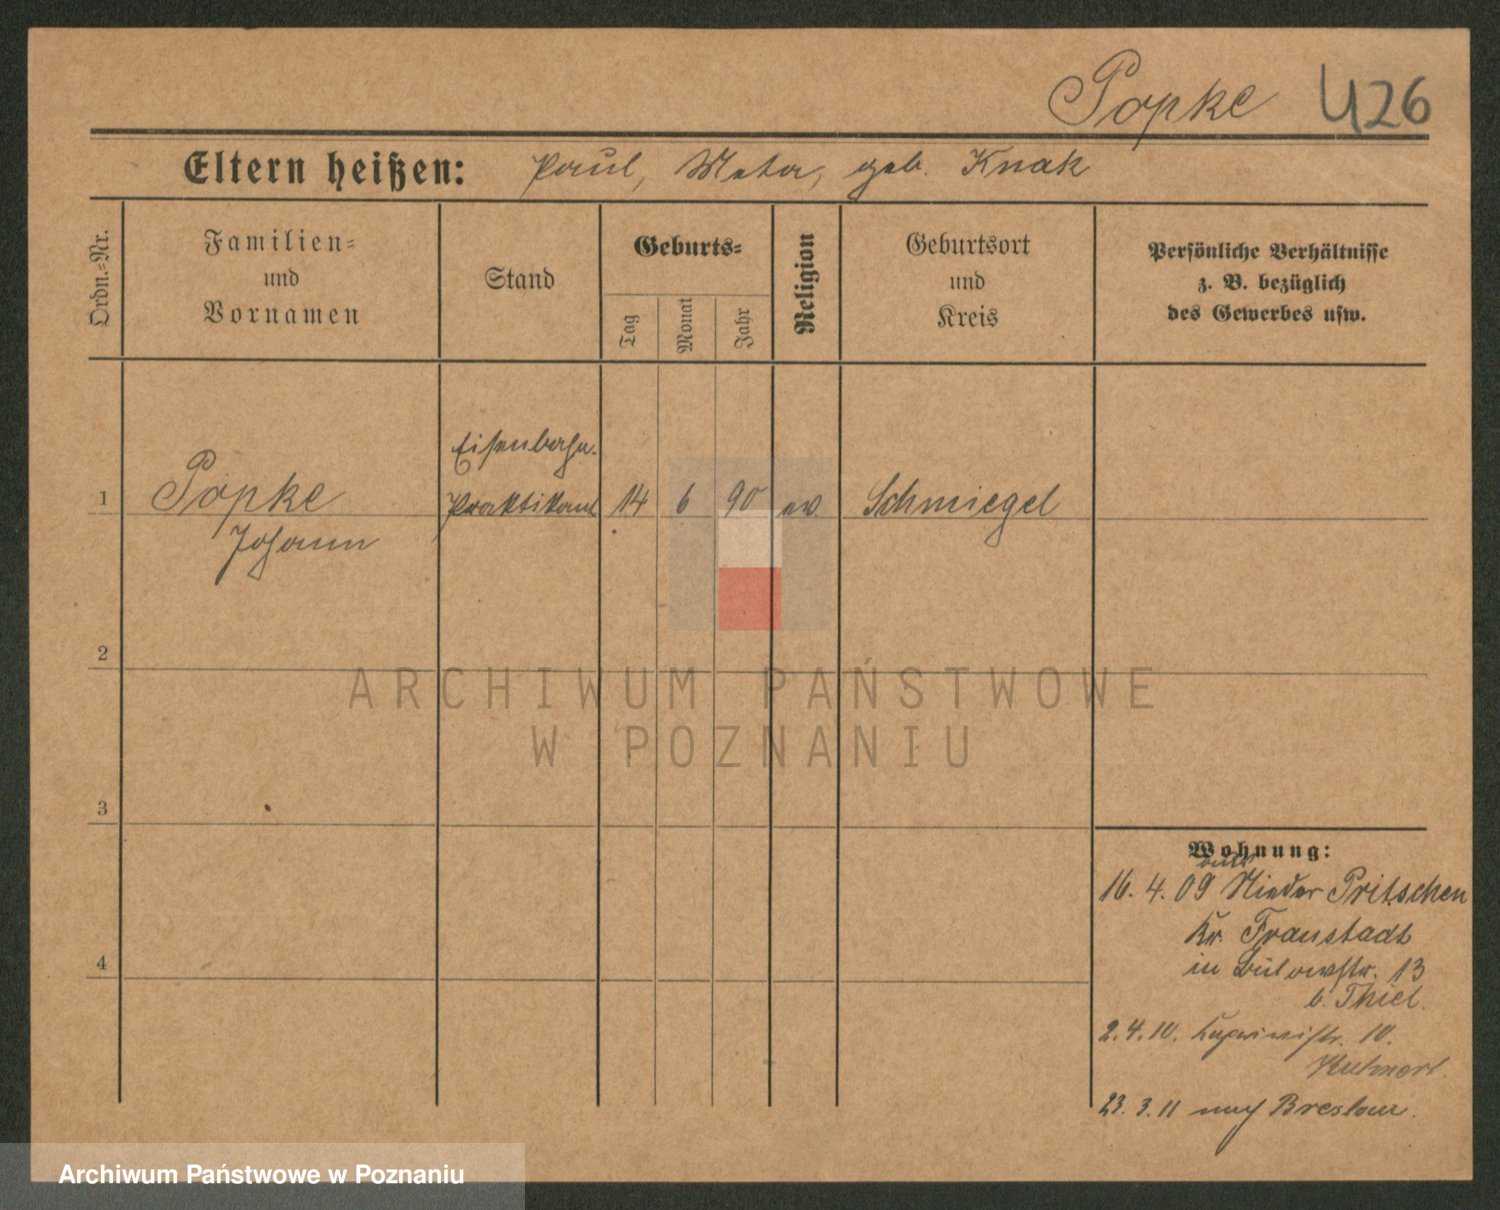 Popke 426
Eltern heißen: Paul, Meta, geb. Knak
Ordn.-Nr.
Familien-
und
Vornamen
Stand
Geburts-
Tag
Monat
Jahr
Religion
Geburtsort
und
Kreis
Persönliche Verhältnisse
z. B. bezüglich
des Gewerbes usw.
Eisenbahn-
1 Popke Praktikant 14 6 90 ev. Schmiegel
Johann
2
3
4
Wohnung:
16. 4. 09 Nieder Pritschen
Kr. Fraustadt
in Bülowstr. 13
b. Thiel.
2. 4. 10. 10.
23. 3. 11 nach Breslau.
ARCHIWUM PAŃSTWOWE
W POZNANIU
Archiwum Państwowe w Poznaniu